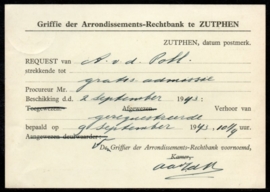 Griffie der Arrondissements-Rechtbank te ZUTPHEN
ZUTPHEN, datum postmerk.
REQUEST van A. v. d. Poll.
strekkende tot gratis admissie
Procureur Mr.
Beschikking d.d. 2 September 1943:
Toegewezen. Afgewezen. Verhoor van
gerequestreerde
bepaald op 9 September 1943, uur.
Aangewezen deurwaarder
De Griffier der Arrondissements-Rechtbank voornoemd,